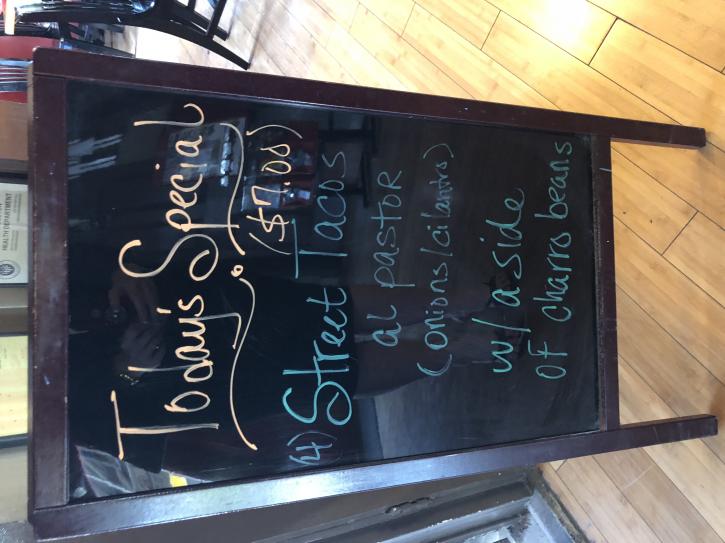 Today's Special
($7.00)
(4) Street Tacos
al pastor
(onions/cilantro)
w/ a side
of charro beans
HEALTH DEPARTMENT